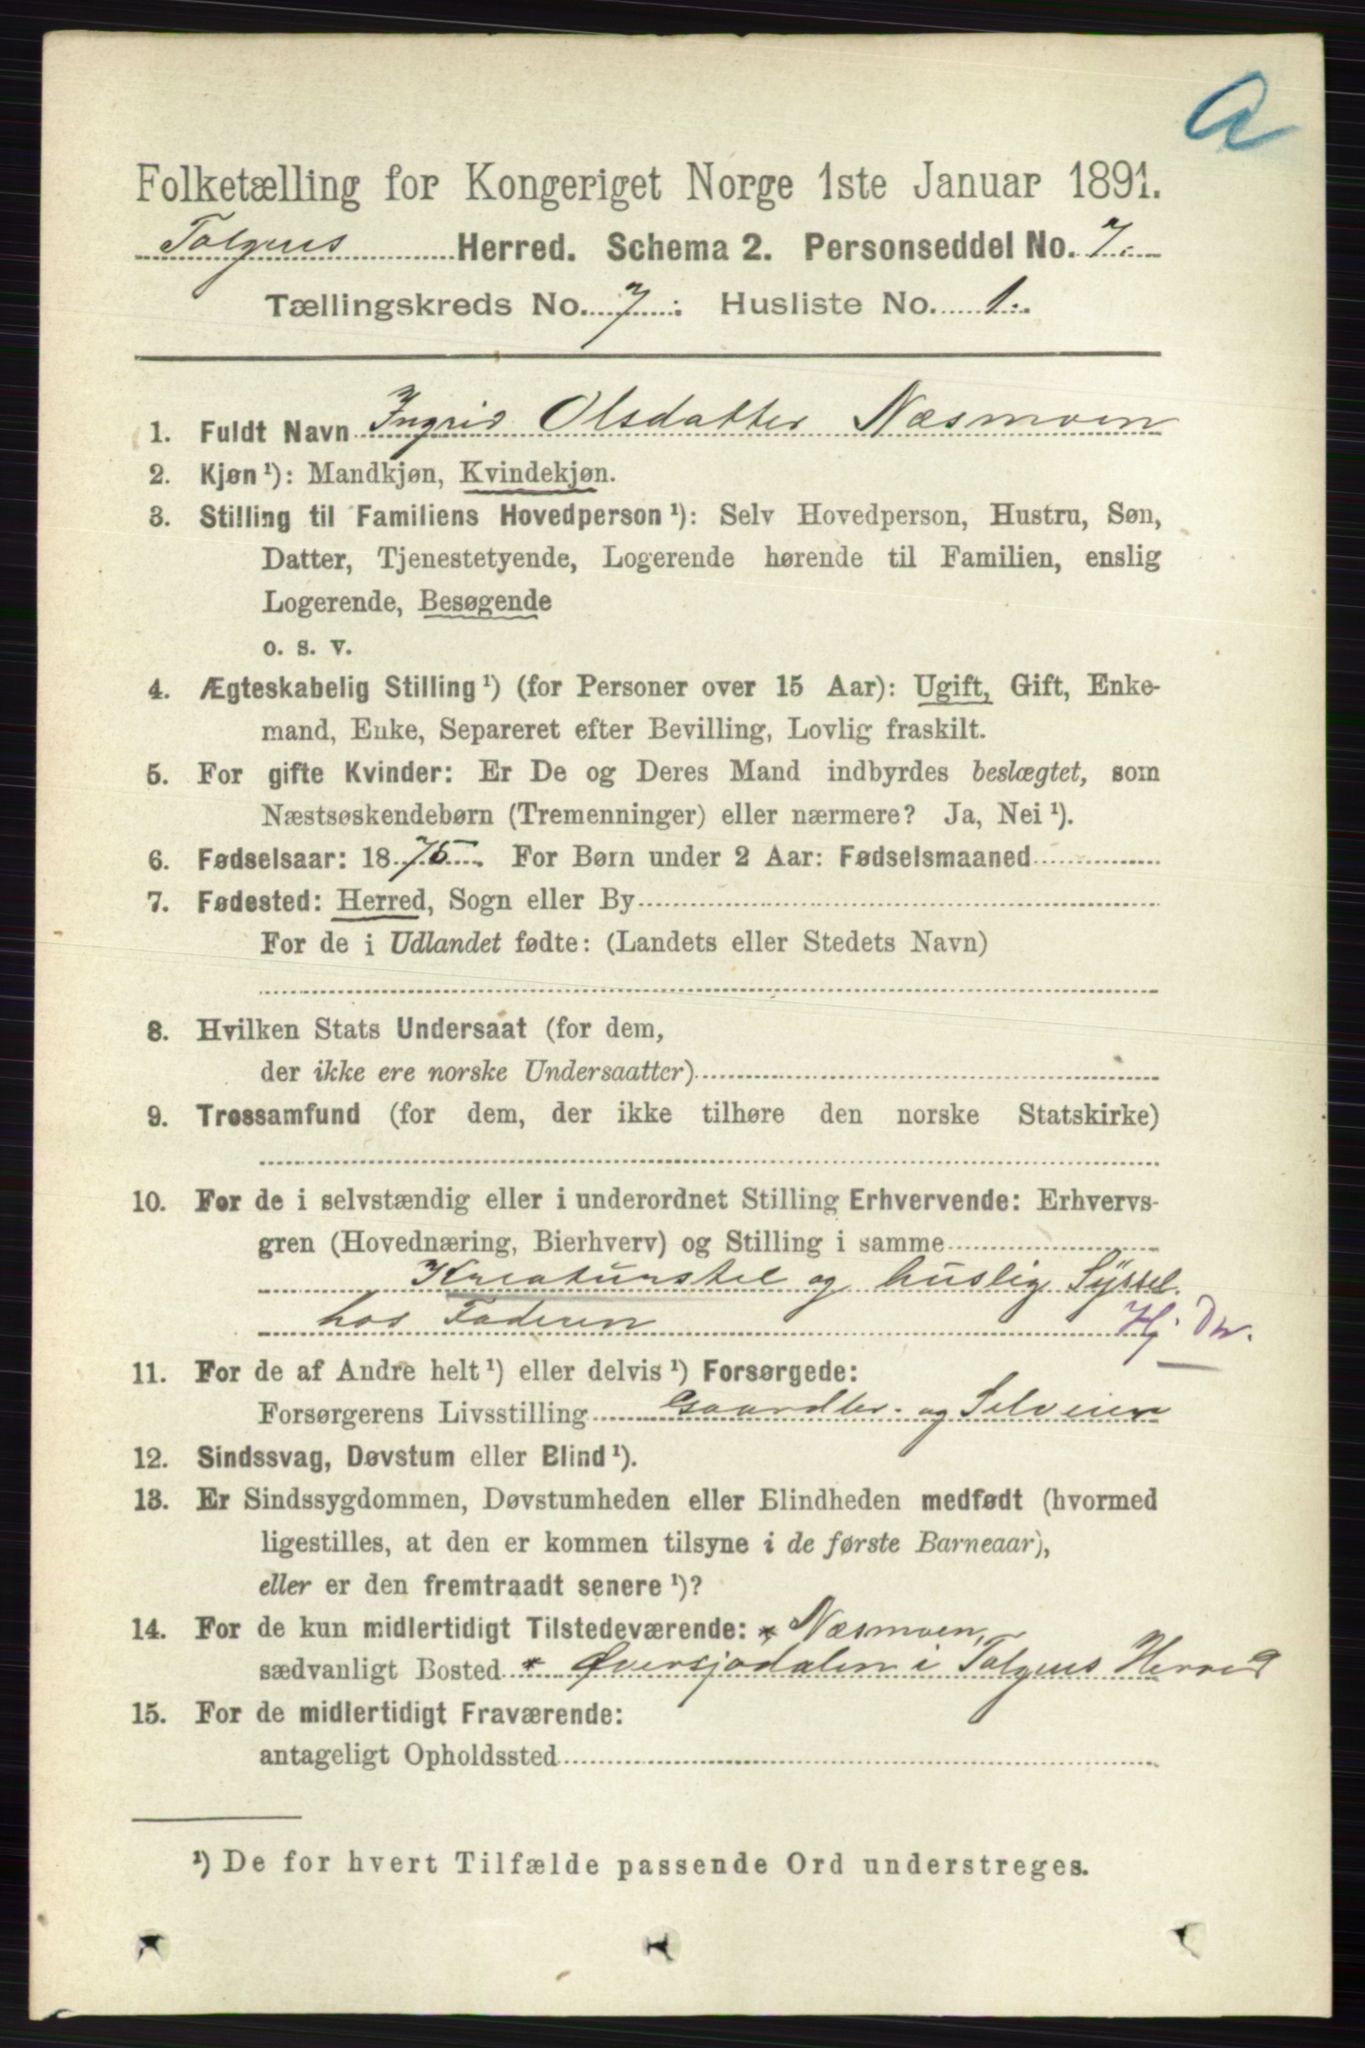 a
Folketælling for Kongeriget Norge 1ste Januar 1891.
Tolgens Herred. Schema 2. Personseddel No. 7.
Tællingskreds No. 7. Husliste No. 1.
1. Fuldt Navn Ingrid Olsdatter Næsmoen
2. Kjøn ¹): Mandkjøn, Kvindekjøn.
3. Stilling til Familiens Hovedperson ¹): Selv Hovedperson, Hustru, Søn,
Datter, Tjenestetyende, Logerende hørende til Familien, enslig
Logerende, Besøgende
o. s. v.
4. Ægteskabelig Stilling ¹) (for Personer over 15 Aar): Ugift, Gift, Enke-
mand, Enke, Separeret efter Bevilling, Lovlig fraskilt.
5. For gifte Kvinder: Er De og Deres Mand indbyrdes beslægtet, som
Næstsøskendebørn (Tremenninger) eller nærmere? Ja, Nei ¹).
6. Fødselsaar: 1875. For Børn under 2 Aar: Fødselsmaaned
7. Fødested: Herred, Sogn eller By
For de i Udlandet fødte: (Landets eller Stedets Navn)
8. Hvilken Stats Undersaat (for dem,
der ikke ere norske Undersaatter)
9. Trossamfund (for dem, der ikke tilhøre den norske Statskirke)
10. For de i selvstændig eller i underordnet Stilling Erhvervende: Erhvervs-
gren (Hovednæring, Bierhverv) og Stilling i samme
Kreaturstel og huslig Syssel.
hos Faderen Hj. Dr.
11. For de af Andre helt ¹) eller delvis ¹) Forsørgede:
Forsørgerens Livsstilling Gaardbr. og Selveier
12. Sindssvag, Døvstum eller Blind ¹).
13. Er Sindssygdommen, Døvstumheden eller Blindheden medfødt (hvormed
ligestilles, at den er kommen tilsyne i de første Barneaar),
eller er den fremtraadt senere ¹)?
14. For de kun midlertidigt Tilstedeværende: * Næsmoen,
sædvanligt Bosted * Øversjødalen i Tolgens Herred
15. For de midlertidigt Fraværende:
antageligt Opholdssted
¹) De for hvert Tilfælde passende Ord understreges.